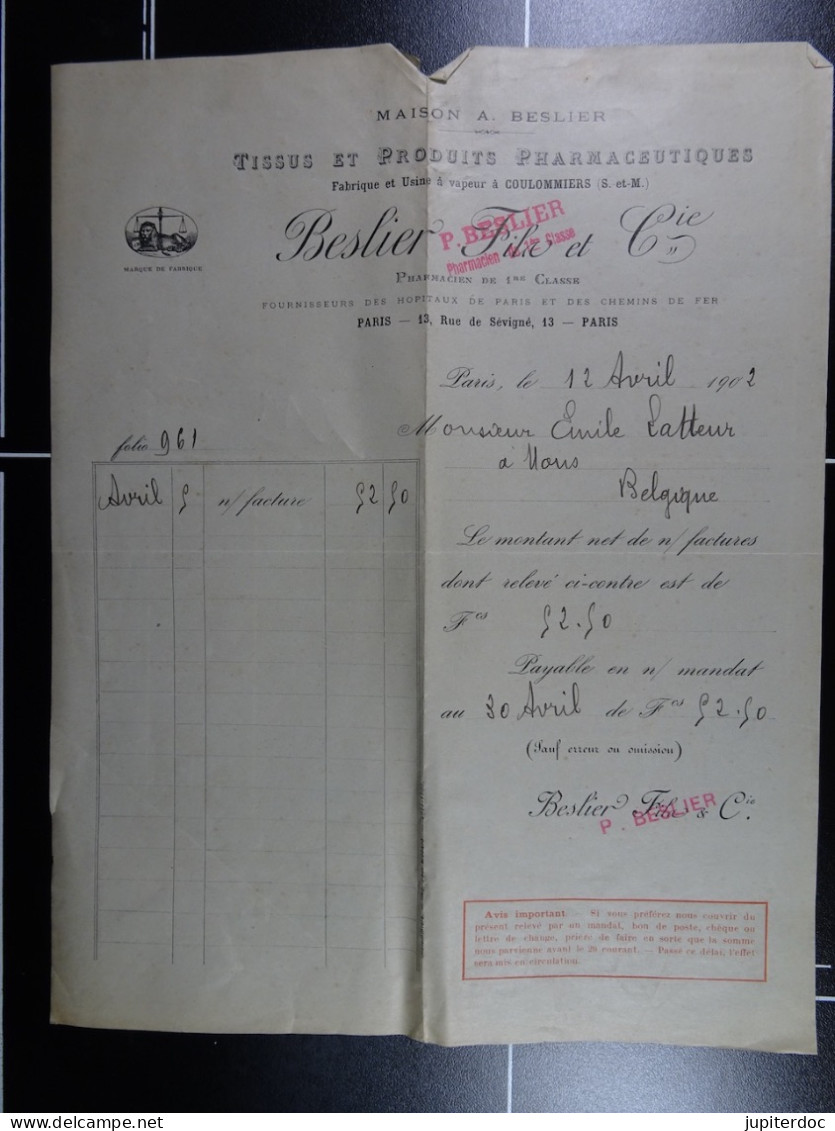 MAISON A. BESLIER
TISSUS ET PRODUITS PHARMACEUTIQUES
Fabrique et Usine à vapeur à COULOMMIERS (S.-et-M.)
Beslier Fils et Cie
P. BESLIER
Pharmacien de 1re Classe
MARQUE DE FABRIQUE
PHARMACIEN DE 1RE CLASSE
FOURNISSEURS DES HOPITAUX DE PARIS ET DES CHEMINS DE FER
PARIS — 13, Rue de Sévigné, 13 — PARIS
Paris, le 12 Avril 1902
Monsieur Emile Latteur
à Mons
Belgique
folio 961
Avril 5 n/ facture 52 50
Le montant net de n/ factures
dont relevé ci-contre est de
Fcs 52.50
Payable en n/ mandat
au 30 Avril de Fcs 52.50
(Sauf erreur ou omission)
Beslier Fils & Cie.
P. BESLIER
Avis important. — Si vous préférez nous couvrir du
présent relevé par un mandat, bon de poste, chèque ou
lettre de change, prière de faire en sorte que la somme
nous parvienne avant le 26 courant. — Passé ce délai, l'effet
sera mis en circulation.
jupiterdoc